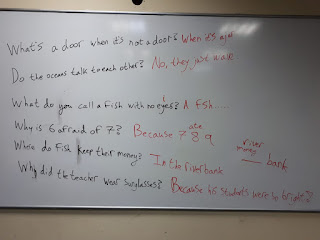 What's a door when it's not a door? When it's ajar
Do the oceans talk to each other? No, they just wave
What do you call a fish with no eyes? A fsh.....
ate
Why is 6 afraid of 7? Because 7 8 9
river
money
Where do fish keep their money? In the riverbank bank
Why did the teacher wear sunglasses? Because his students were so bright?